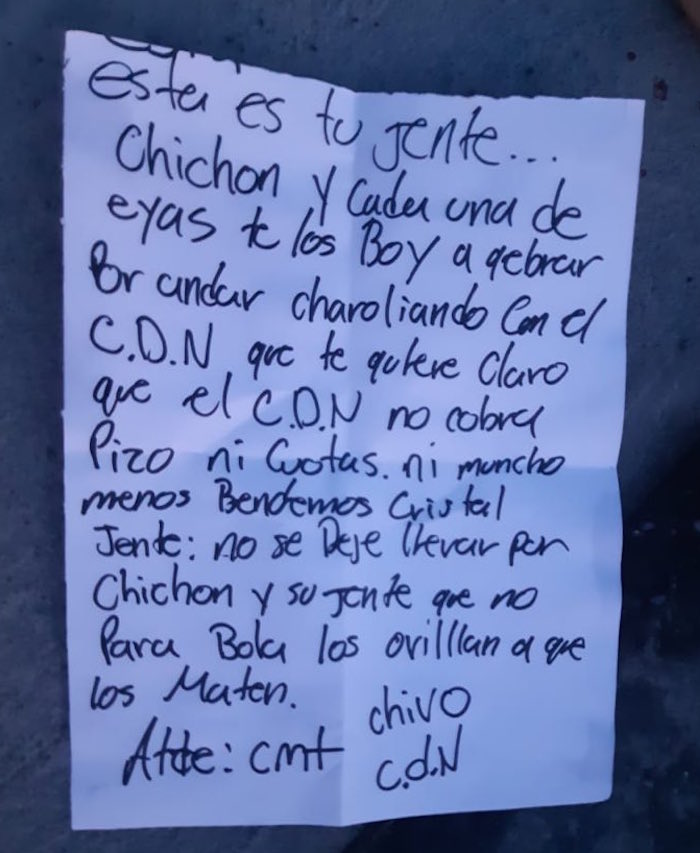 esta es tu jente...
Chichon y Cada una de
eyas te los Boy a qebrar
Por andar charoliando Con el
C.D.N que te quiere Claro
que el C.D.N no cobra
Pizo ni Cuotas. ni muncho
menos Bendemos Cristal
Jente: no se Deje llevar por
Chichon y su jente que no
Para Bola los orilllan a que
los Maten.
chivo
Atte: cmt
C.d.N